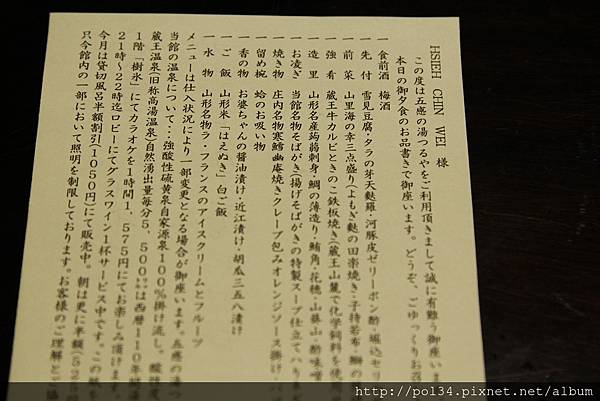 HSIEH CHIN WEI 様
この度は五感の湯つるやをご利用頂きまして誠に有難う御座いま
本日の御夕食のお品書きで御座います。どうぞ、ごゆっくりお召
一 食前酒 梅酒
一 先 付 雪見豆腐・タラの芽天麩羅・河豚皮ゼリーポン酢・堀込セリ
一 前 菜 山里海の幸三点盛り(よもぎ麩の田楽焼き・子持若布・鰤の
一 強 肴 蔵王牛カルビときのこ鉄板焼き(蔵王山麓で化学飼料を使
一 造 里 山形名産蒟蒻刺身・鯛の薄造り・鮪角・花穂・山葵・酢味噌
一 お凌ぎ 当館名物そばがき(揚げそばがきの特製スープ仕立てハリ
一 焼き物 庄内名物寒鱈幽庵焼きクレープ包みオレンジソース掛け・
一 留め椀 蛤のお吸い物
一 香の物 お婆ちゃんの醤油漬け・近江漬け・胡瓜三五八漬け
一 ご 飯 山形米「はえぬき」白ご飯
一 水 物 山形名物ラ・フランスのアイスクリームとフルーツ
メニューは仕入状況により一部変更となる場合が御座います。五感の湯
当館の温泉について・・・強酸性硫黄泉自家源泉100%掛け流し。
蔵王温泉(旧称高湯温泉)自然湧出量毎分5,500㍑は西暦110年
1階「樹氷」にてカラオケを1時間1,575円にてお楽しみ頂けま
21時～22時迄ロビーにてグラスワイン1杯サービス中です。この
今月は貸切風呂半額割引(1050円)にて販売中。朝は更に半額(52
只今館内の一部において照明を制限しております。お客様のご理解と
http://pol34.pixnet.net/album